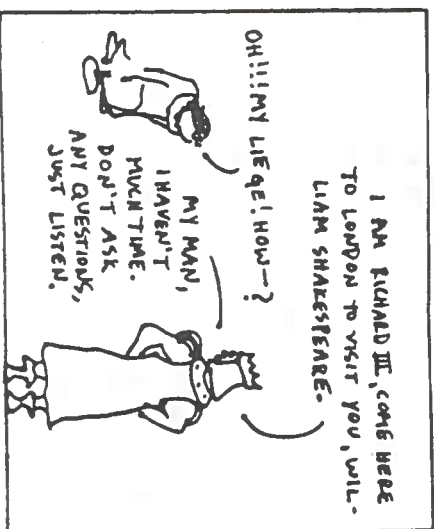 I AM RICHARD III, COME HERE
TO LONDON TO VISIT YOU, WIL-
LIAM SHAKESPEARE.
OH!!! MY LIEGE! HOW—?
MY MAN,
I HAVEN'T
MUCH TIME.
DON'T ASK
ANY QUESTIONS,
JUST LISTEN.